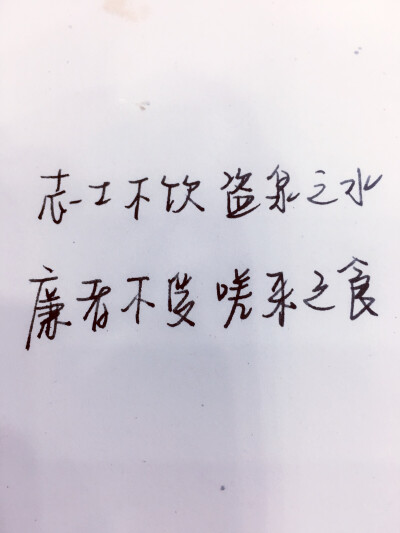 志士不饮盗泉之水
廉者不受嗟来之食